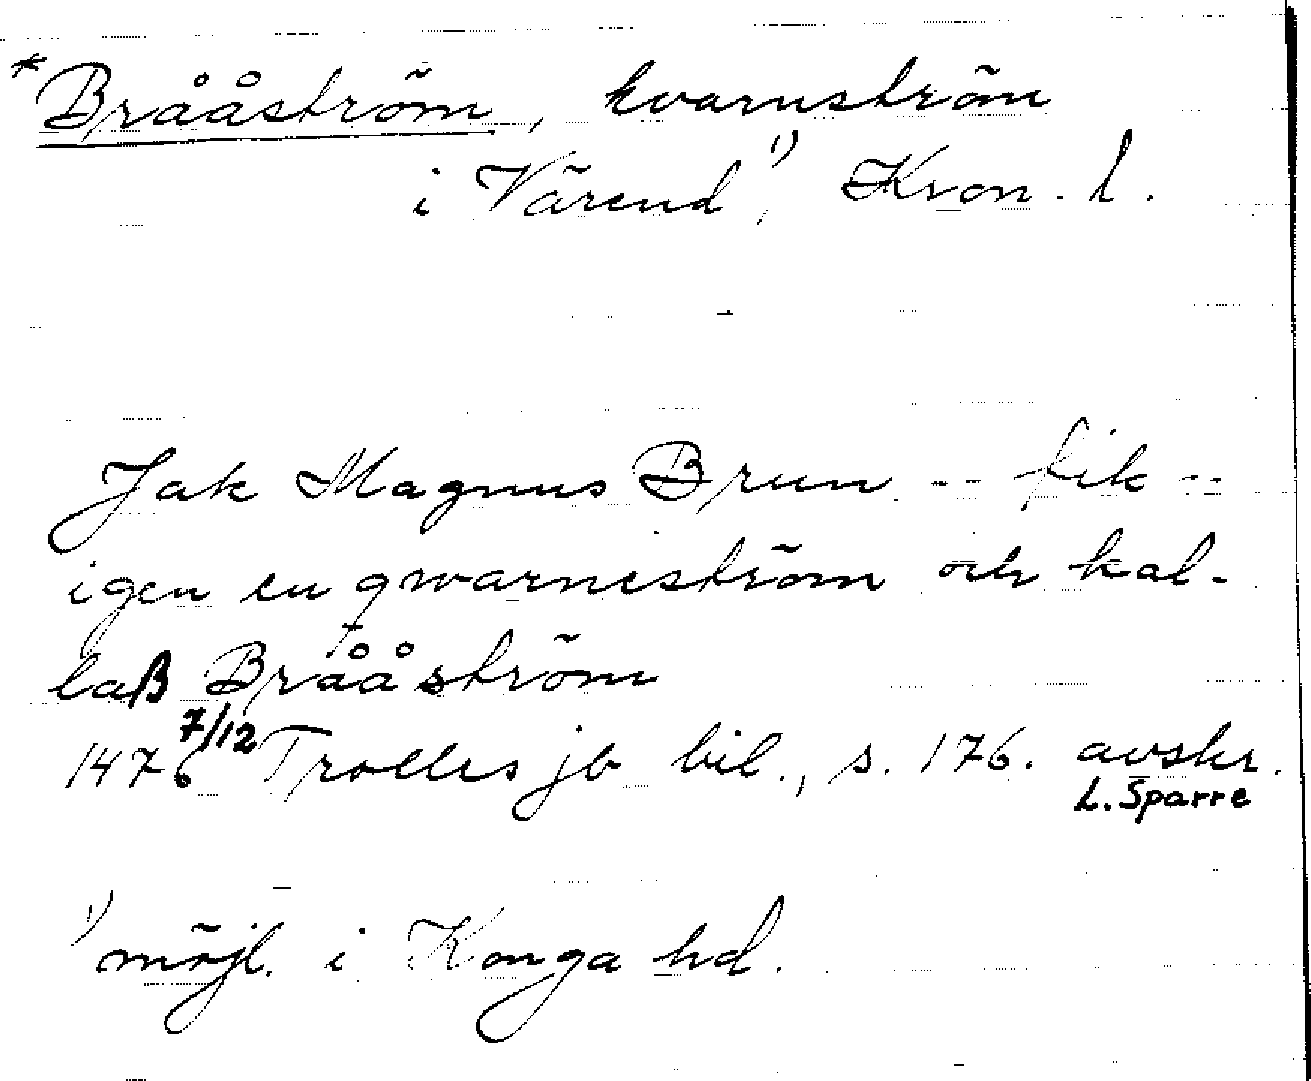 *Brååström, kvarnström
i Värend¹⁾, Kron. l.
Jak Magnus Brun -- fik --
igen en qwarneström och kal-
laß Brååström
1476 7/12 Trolles jb bil., s. 176. avskr.
L. Sparre
¹⁾ möjl. i Konga hd.